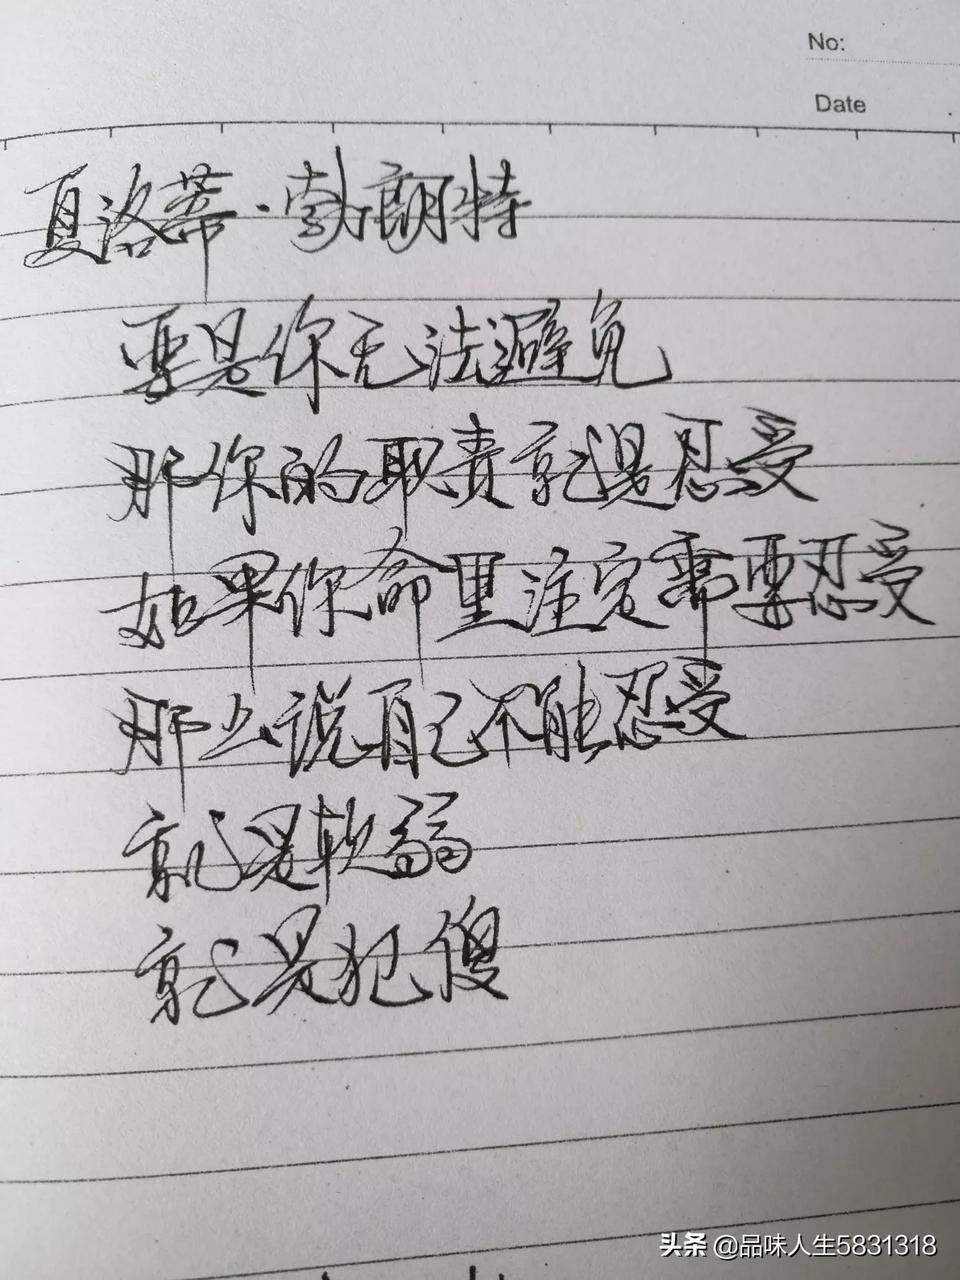 No:
Date
夏洛蒂·勃朗特
要是你无法避免
那你的职责就是忍受
如果你命里注定需要忍受
那么说自己不能忍受
就是软弱
就是犯傻
头条 @品味人生5831318